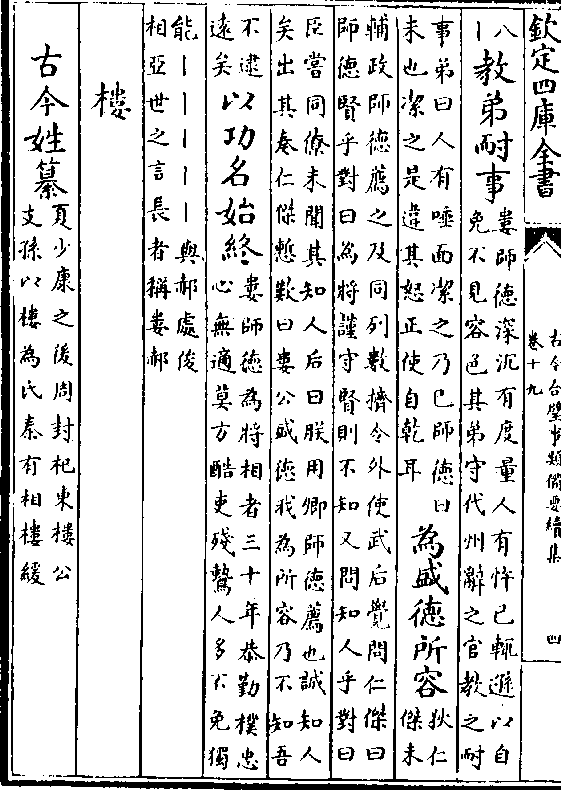 欽定四庫全書
古今合璧事類備要續集
卷十九
四
八
丨
教弟耐事
婁師德深沉有度量人有忤已輒遜以自
免不見容色其弟守代州辭之官教之耐
事弟曰人有唾面潔之乃已師德曰
未也潔之是違其恕正使自乾耳
為盛德所容
狄仁
傑未
輔政師德薦之及同列數擠令外使武后覺問仁傑曰
師德賢乎對曰為將謹守賢則不知又問知人乎對曰
臣嘗同僚未聞其知人后曰朕用卿師德薦也誠知人
矣出其奏仁傑慙歎曰婁公盛德我為所容乃不知吾
不逮
逺矣
以功名始終
婁師德為將相者三十年恭勤樸忠
心無適莫方酷吏殘鷙人多不免獨
能丨丨丨丨丨與郝處俊
相亞世之言長者稱婁郝
樓
古今姓纂
夏少康之後周封杞東樓公
支孫以樓為氏秦有相樓緩